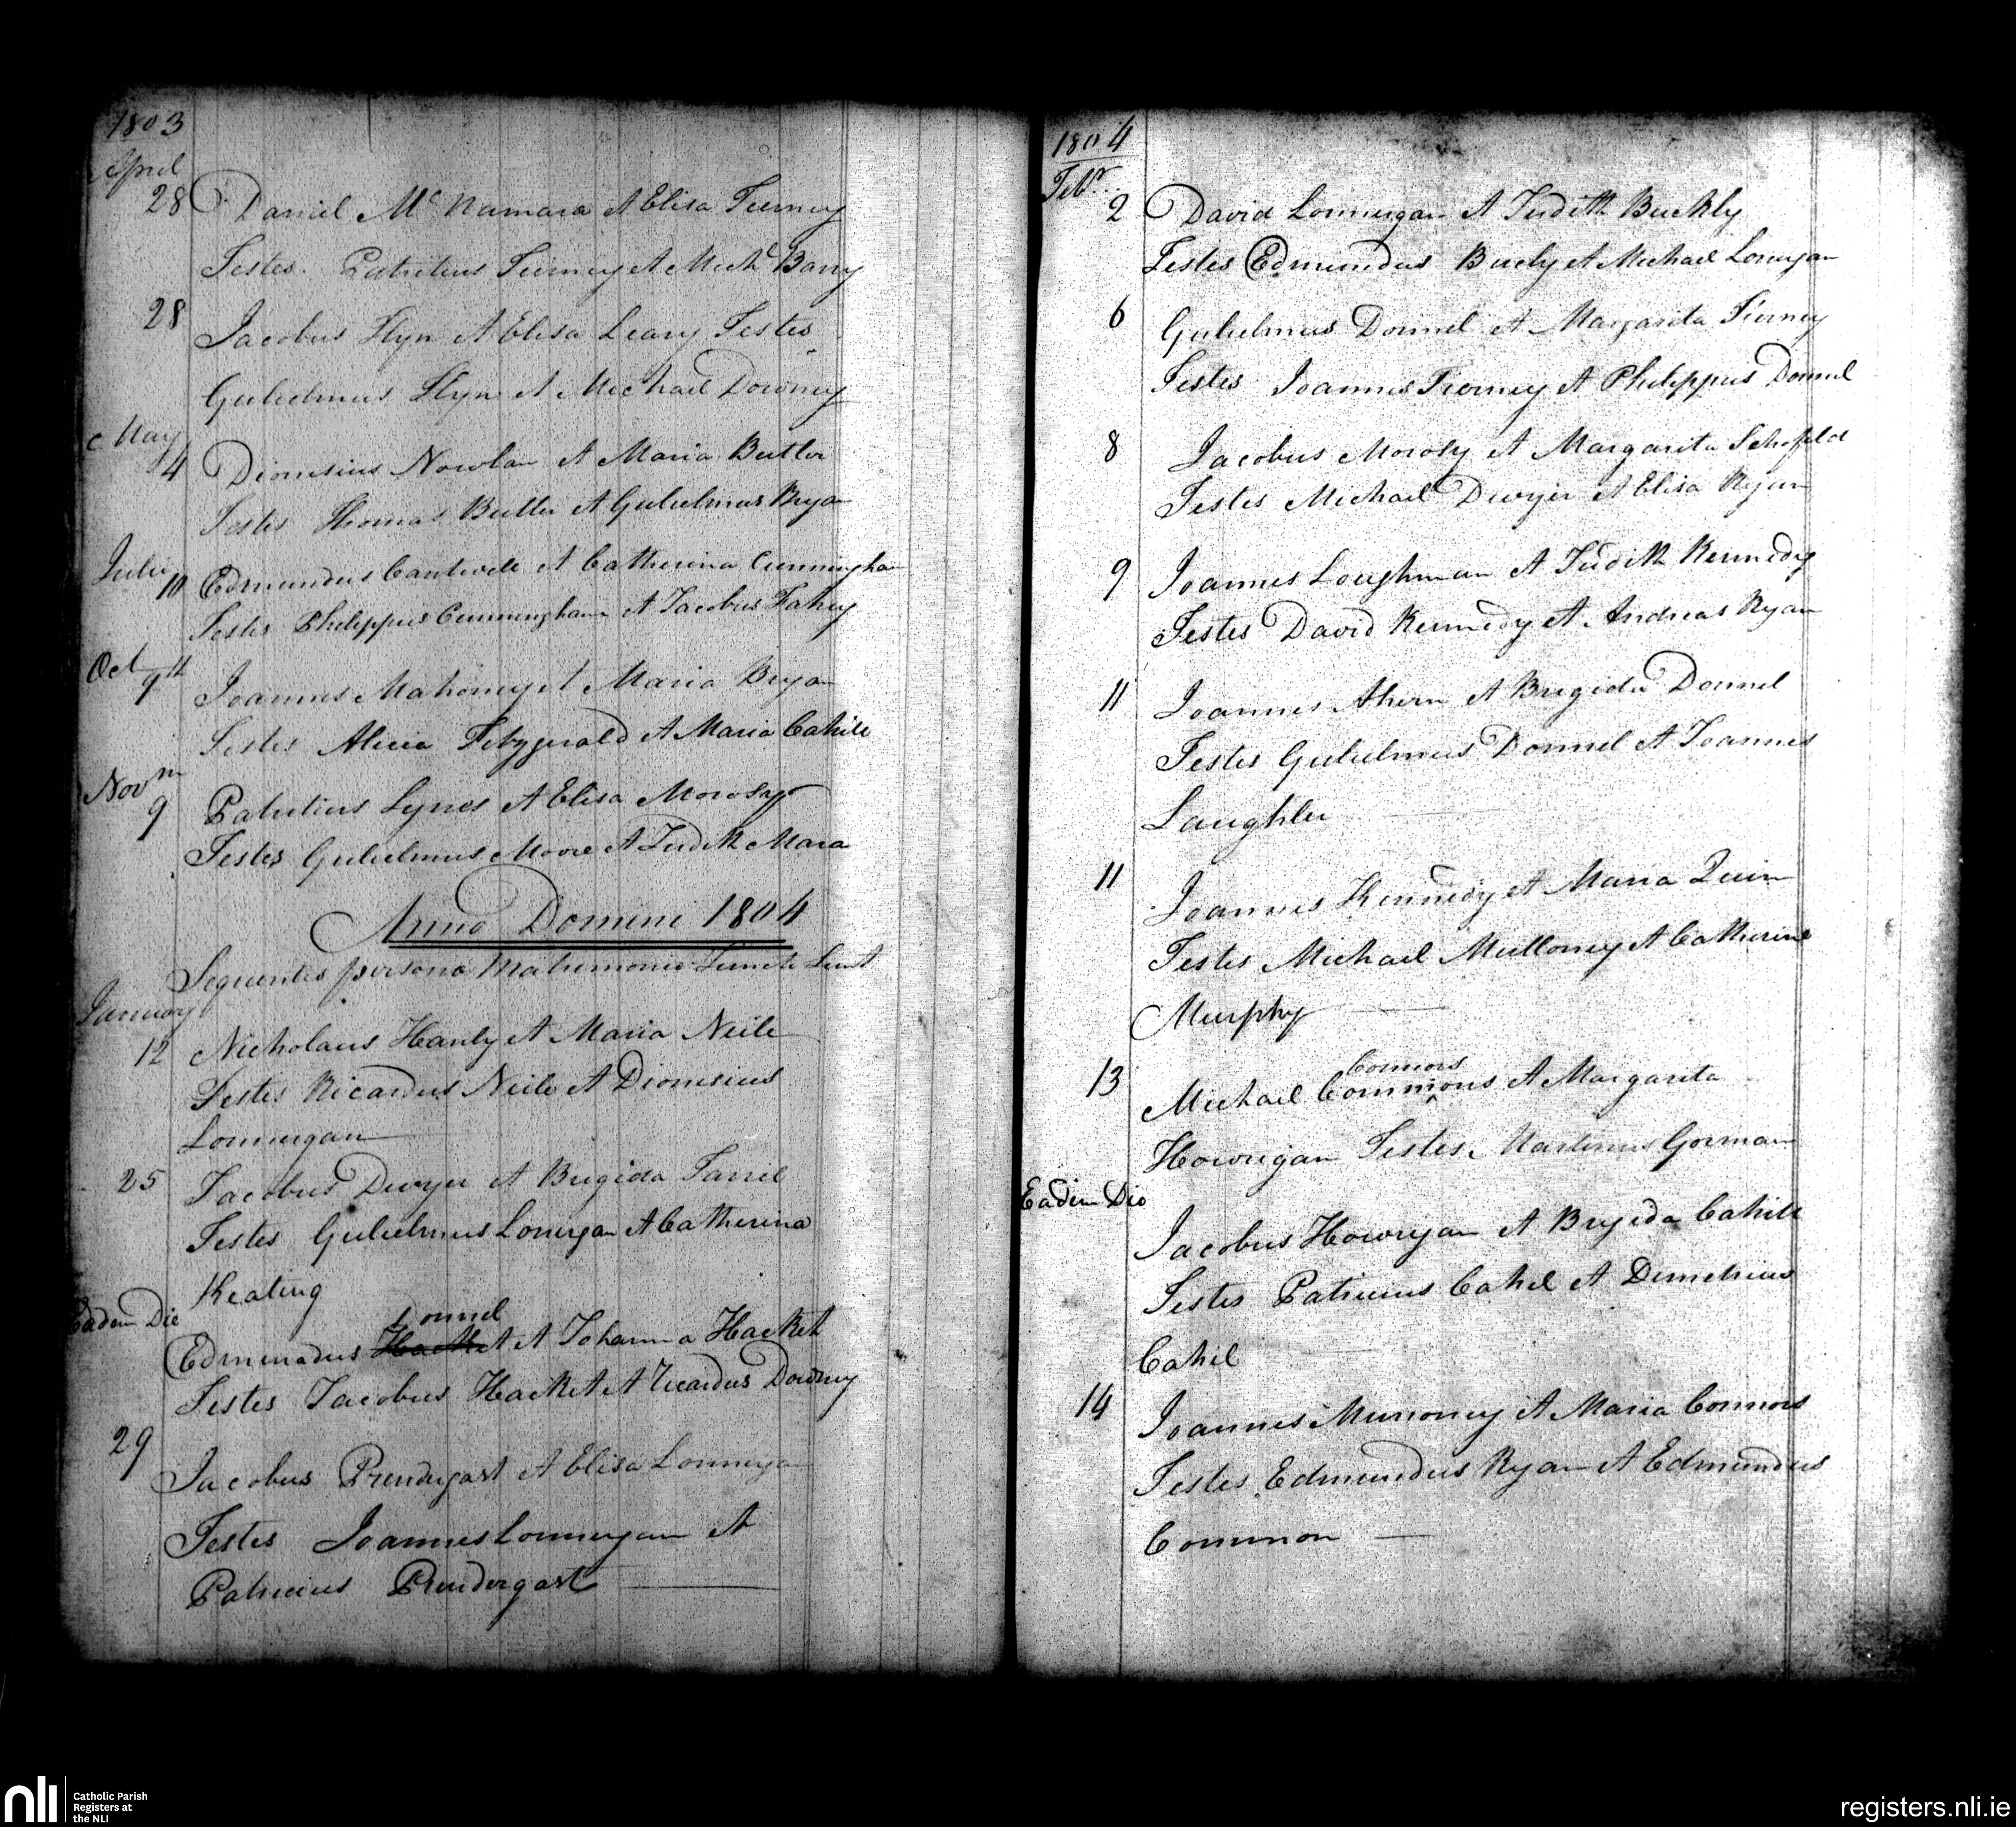 1803
April
28 Daniel McNamara et Elisa Tierney
Testes Patritius Tierney et Michl Barry
28 Jacobus Flyn et Elisa Leary Testes
Gulielmus Flyn et Michael Downey
May
4 Dionisius Nowlan et Maria Butler
Testes Thomas Butler et Gulielmus Bryan
Julii
10 Edmundus Cantwell et Catherina Cunningham
Testes Philippus Cunningham et Jacobus Fahey
Oct
9th Joannes Mahoney et Maria Bryan
Testes Alicia Fitzgerald et Maria Cahill
Novm
9 Patritius Lynes et Elisa Morosy
Testes Gulielmus Moore et Judith Mara
Anno Domini 1804
Sequentes persona Matrimonio Juncti Sunt
January
12 Nicholaus Hanly et Maria Neile
Testes Ricardus Neile et Dionisius
Lonnergan
25 Jacobus Dwyer et Brigida Farrel
Testes Gulielmus Lonergan et Catherina
Keating
Eadem Die
Donnel
Edmundus Hacket et Johanna Hacket
Testes Jacobus Hacket et Ricardus Downey
29
Jacobus Prendergast et Elisa Lonnergan
Testes Joannes Lonnergan et
Patricius Prendergast
1804
Febr.
2 David Lonnergan et Judith Buckly
Testes Edmundus Bucly et Michael Lonergan
6 Gulielmus Donnel et Margarita Tierney
Testes Joannes Tierney et Philippus Donnel
8 Jacobus Morosy et Margarita Schofeld
Testes Michael Dwyer et Elisa Ryan
9 Joannes Loughman et Judith Kennedy
Testes David Kennedy et Andreas Ryan
11 Joannes Ahern et Brigida Donnel
Testes Gulielmus Donnel et Joannes
Laughler
11 Joannes Kennedy et Maria Quin
Testes Michael Mulloney et Catherine
Murphy
Connors
13 Michael Commons et Margarita
Howrigan Testes Martinus Gorman
Eadem Die
Jacobus Howrygan et Brigida Cahill
Testes Patricius Cahil et Demetrius
Cahil
14 Joannes Munoney et Maria Connors
Testes Edmundus Ryan et Edmundus
Common
nli
Catholic Parish
Registers at
the NLI
registers.nli.ie